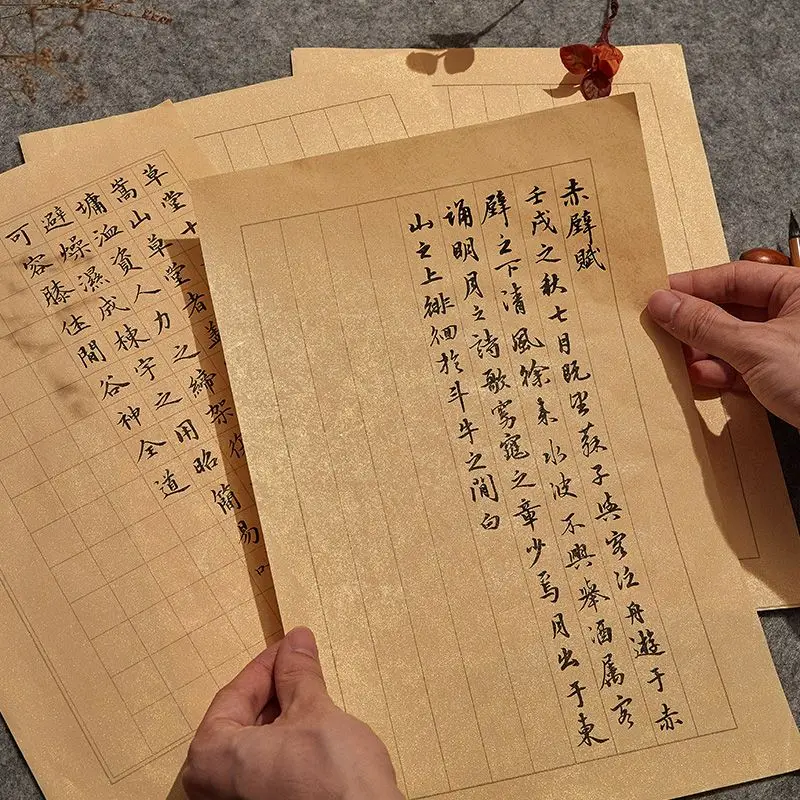 赤壁賦
壬戌之秋七月既望蘇子與客泛舟遊于赤
壁之下清風徐來水波不興舉酒属客
誦明月之詩歌窈窕之章少焉月出于東
山之上徘徊於斗牛之間白
草堂十
嵩山草堂者蓋
墉洫資人力之締架
避燥濕成棟宇之用昭簡易
可容膝休間谷神全道